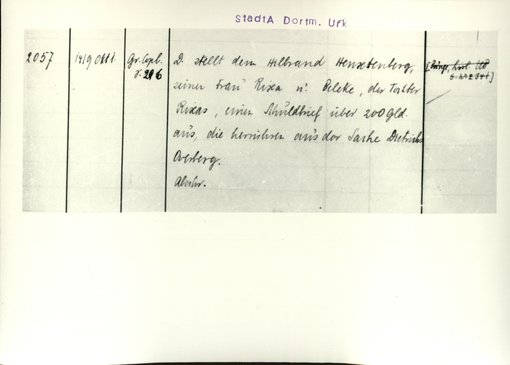 StadtA Dortm. Urk
2057
1419 Okt 1
Gr. Copb.
S. 206
D. stellt dem Hilbrand Henxtenberg,
seiner Frau Rixa u. Beleke, der Tochter
Rixas, einen Schuldbrief über 200 Gld.
aus, die herrühren aus der Sache Dietrichs
Overberg.
Abschr.